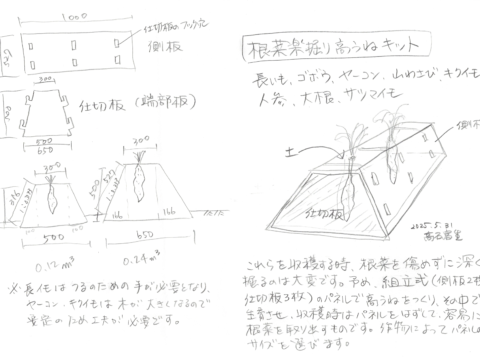 1000
仕切板のフック穴
側板
300
仕切板（端部板）
500
650
300
300
500
166
166
500
650
0.12m³
0.24m³
※長イモはつるのための手が必要となり、
ヤーコン、キクイモは木が大きくなるので
安定のため工夫が必要です。
根菜楽掘り高うねキット
長いも、ゴボウ、ヤーコン、山わさび、キクイモ
人参、大根、サツマイモ
土
側板
仕切板
2025.5.31
これらを収穫する時、根菜を傷めずに深く
掘るのは大変です。予め、組立式（側板2枚
仕切板3枚）のパネルで高うねをつくり、その中で
生育させ、収穫時はパネルをはずして、容易に
根菜を取り出すものです。作物によってパネルの
サイズを選びます。